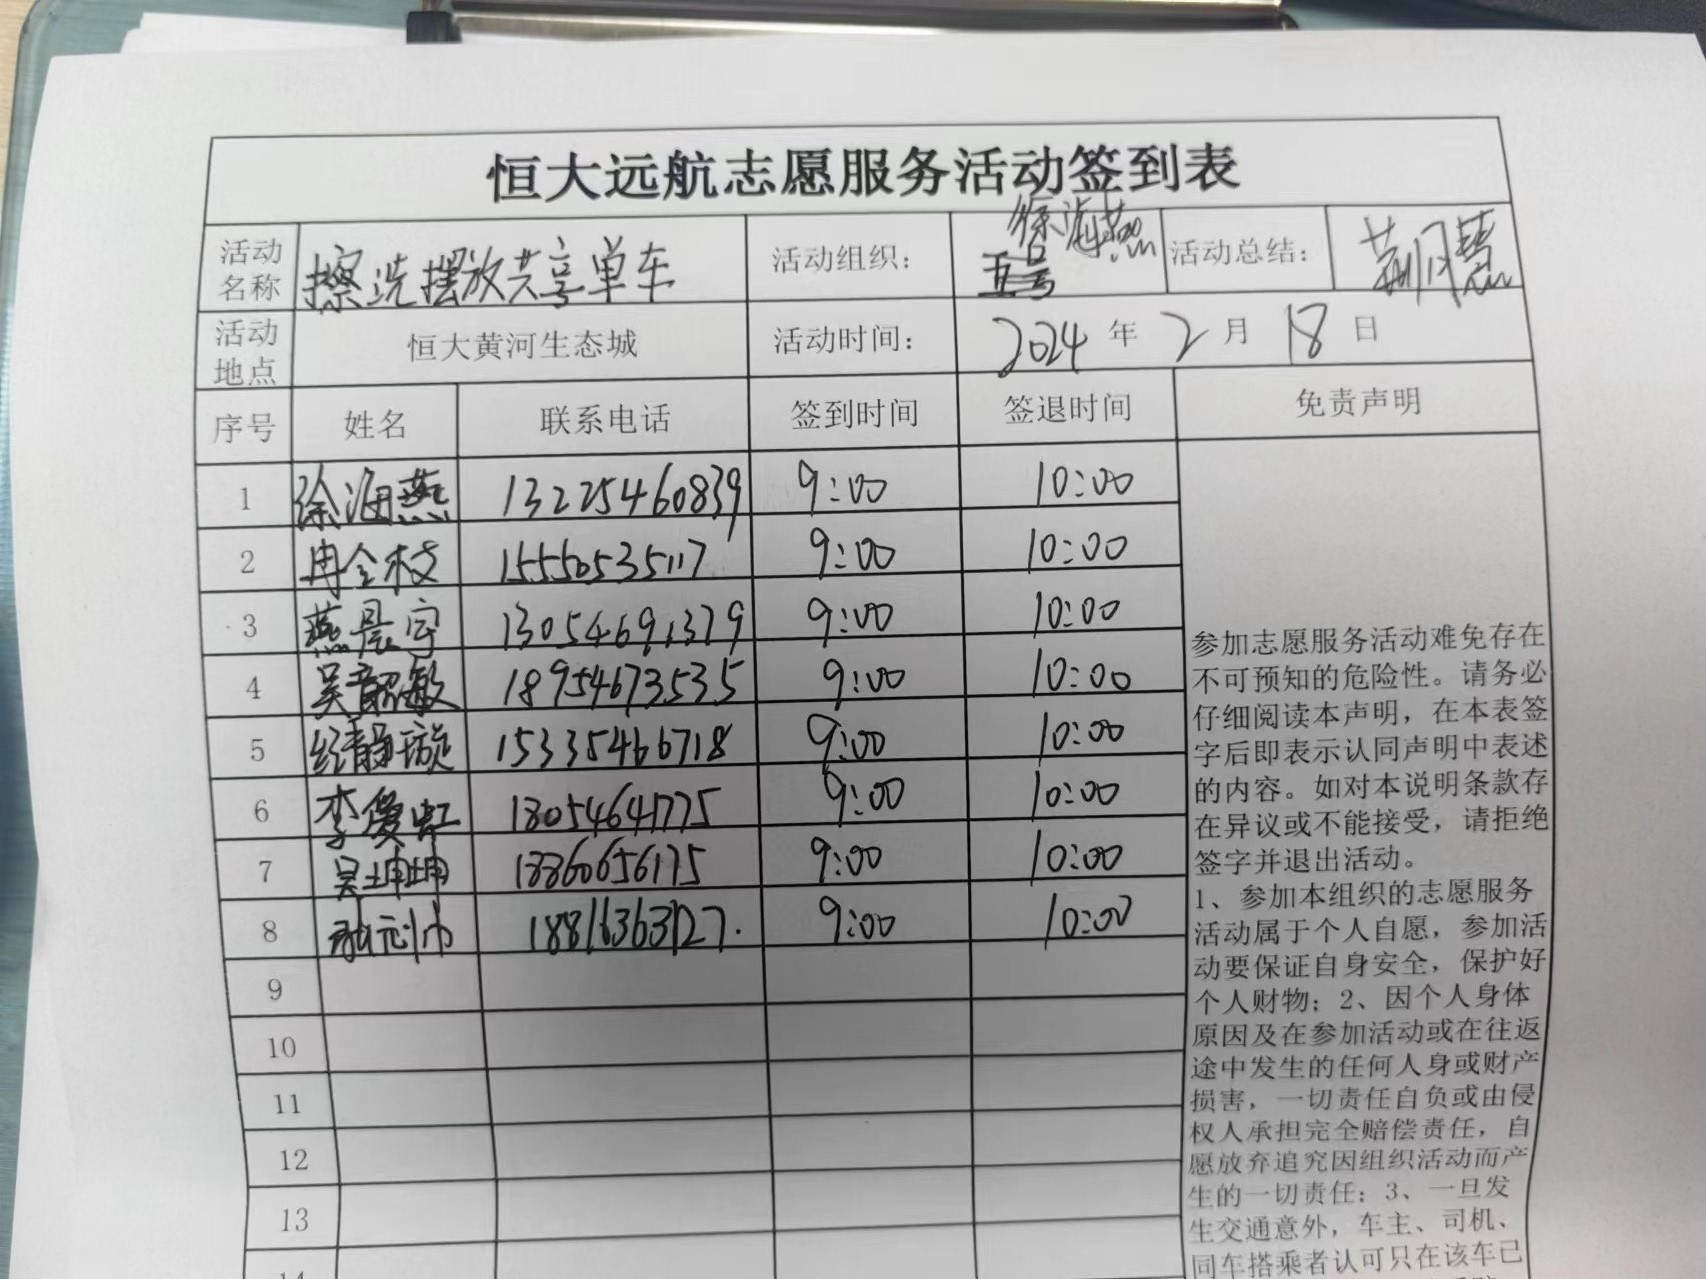 恒大远航志愿服务活动签到表
活动名称 擦洗摆放共享单车 活动组织： 徐海燕 活动总结：
活动地点 恒大黄河生态城 活动时间： 2024 年 2 月 18 日
序号 姓名 联系电话 签到时间 签退时间 免责声明
1 徐海燕 13225460839 9:00 10:00
2 冉全枝 15550535117 9:00 10:00
3 燕晨宇 13054691379 9:00 10:00
4 吴韶敏 18954673535 9:00 10:00
5 经静璇 15335466718 9:00 10:00
6 李爱虹 18054641775 9:00 10:00
7 吴坤坤 18860656175 9:00 10:00
8 9:00 10:00
9
10
11
12
13
14
参加志愿服务活动难免存在
不可预知的危险性。请务必
仔细阅读本声明，在本表签
字后即表示认同声明中表述
的内容。如对本说明条款存
在异议或不能接受，请拒绝
签字并退出活动。
1、参加本组织的志愿服务
活动属于个人自愿，参加活
动要保证自身安全，保护好
个人财物；2、因个人身体
原因及在参加活动或在往返
途中发生的任何人身或财产
损害，一切责任自负或由侵
权人承担完全赔偿责任，自
愿放弃追究因组织活动而产
生的一切责任；3、一旦发
生交通意外，车主、司机、
同车搭乘者认可只在该车已